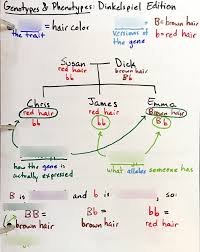 Genotypes & Phenotypes: Dinkelspiel Edition
= hair color
the trait
versions of
the gene
B = brown hair
b = red hair
Susan
red hair
bb
Dick
brown hair
Bb
Chris
red hair
bb
James
red hair
bb
Emma
Brown hair
Bb
how the gene is
actually expressed
what alleles someone has
B is and b is , so:
BB =
brown hair
Bb =
brown hair
bb =
red hair